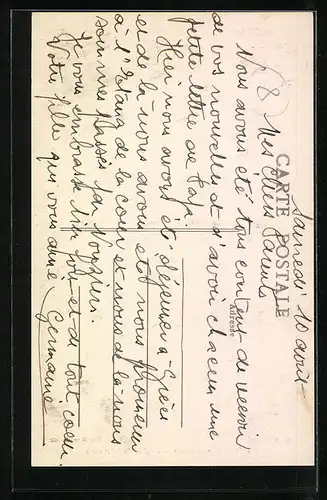 CARTE POSTALE
Adresse
Samedi 10 août
Mes chers Parents
Nous avons été tous content de recevoir
de vos nouvelles et d'avoir chacun une
petite lettre de Papa.
Hier nous avons été déjeuner à
et de là nous avons été nous promener
à l'Etang de la cour et nous de là nous
sommes passés par
Je vous embrasse fois et de tout coeur.
Votre fille qui vous aime Germaine